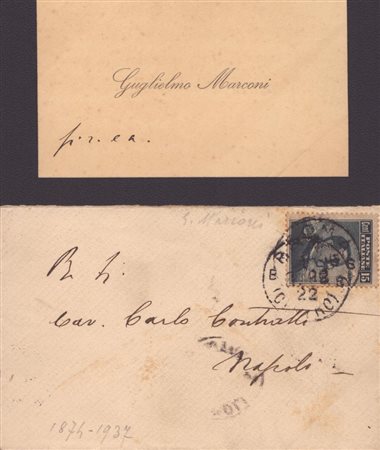 Guglielmo Marconi
p. r. e a.
G. Marconi
POSTE
ITALIANE
Cent 15
ROMA
22
Cav. Carlo Contratti
Napoli
1874-1937